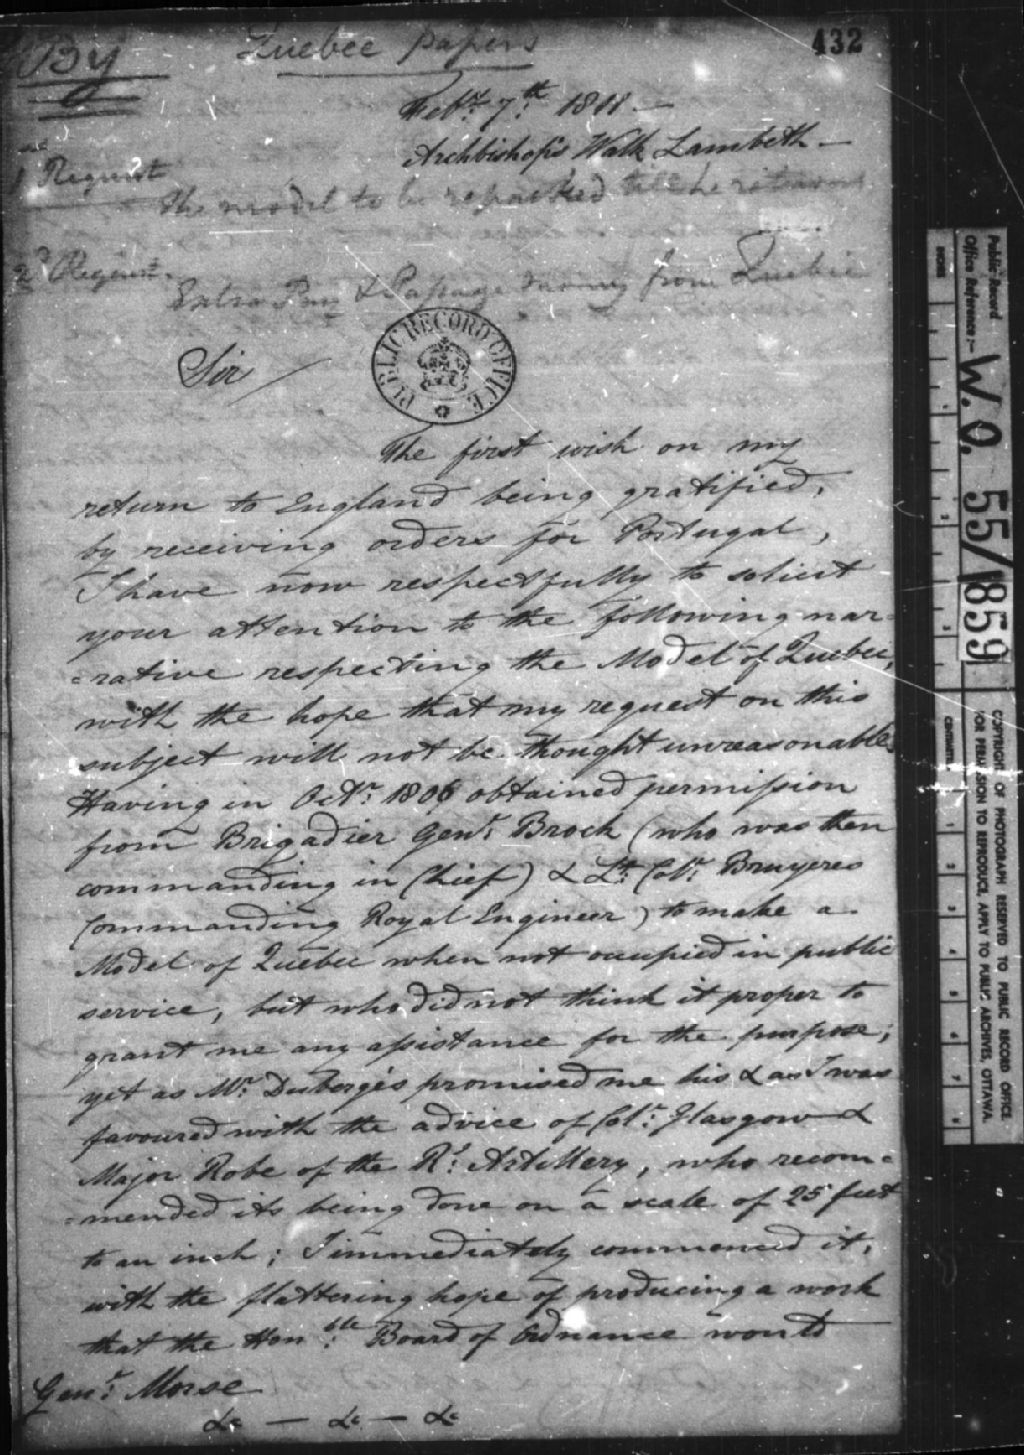 By
Quebec papers
432
Feby. 7th. 1811 —
Archbishops Walk Lambeth —
1st Request
the model to be repacked till he returns
2d Request.
Extra Pay & Passage money from Quebec
Sir /
PUBLIC RECORD OFFICE
The first wish on my
return to England being gratified,
by receiving orders for Portugal,
I have now respectfully to solicit
your attention to the following nar-
=rative respecting the Model of Quebec,
with the hope that my request on this
subject will not be thought unreasonable.
Having in Octr. 1806 obtained permission
from Brigadier Genl. Brock (who was then
commanding in Chief) & Lt. Col. Bruyeres
Commanding Royal Engineer) to make a
Model of Quebec when not occupied in public
service, but who did not think it proper to
grant me any assistance for the purpose;
yet as Mr. Duberges promised me his & as I was
favoured with the advice of Col. Glasgow &
Major Robe of the Rl. Artillery, who recom-
=mended its being done on a scale of 25 feet
to an inch; I immediately commenced it,
with the flattering hope of producing a work
that the Honble. Board of Ordnance would
Genl. Morse
&c — &c — &c
Public Record
Office Reference :-
W.O. 55/1859
INCHES
CENTIMETRES
COPYRIGHT OF PHOTOGRAPH RESERVED TO PUBLIC RECORD OFFICE.
FOR PERMISSION TO REPRODUCE, APPLY TO PUBLIC ARCHIVES, OTTAWA.